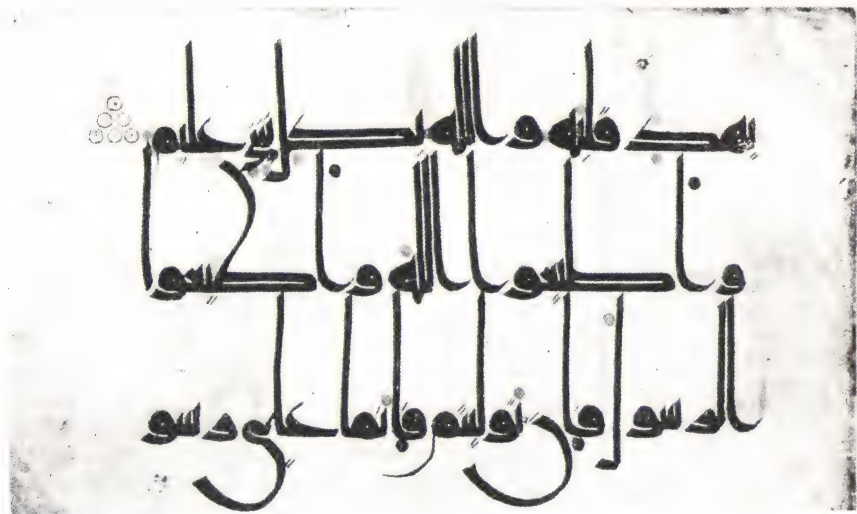 يهد قلبه والله بكل شي عليم
واطيعوا الله واطيعوا
الرسول فان توليتم فانما على رسو